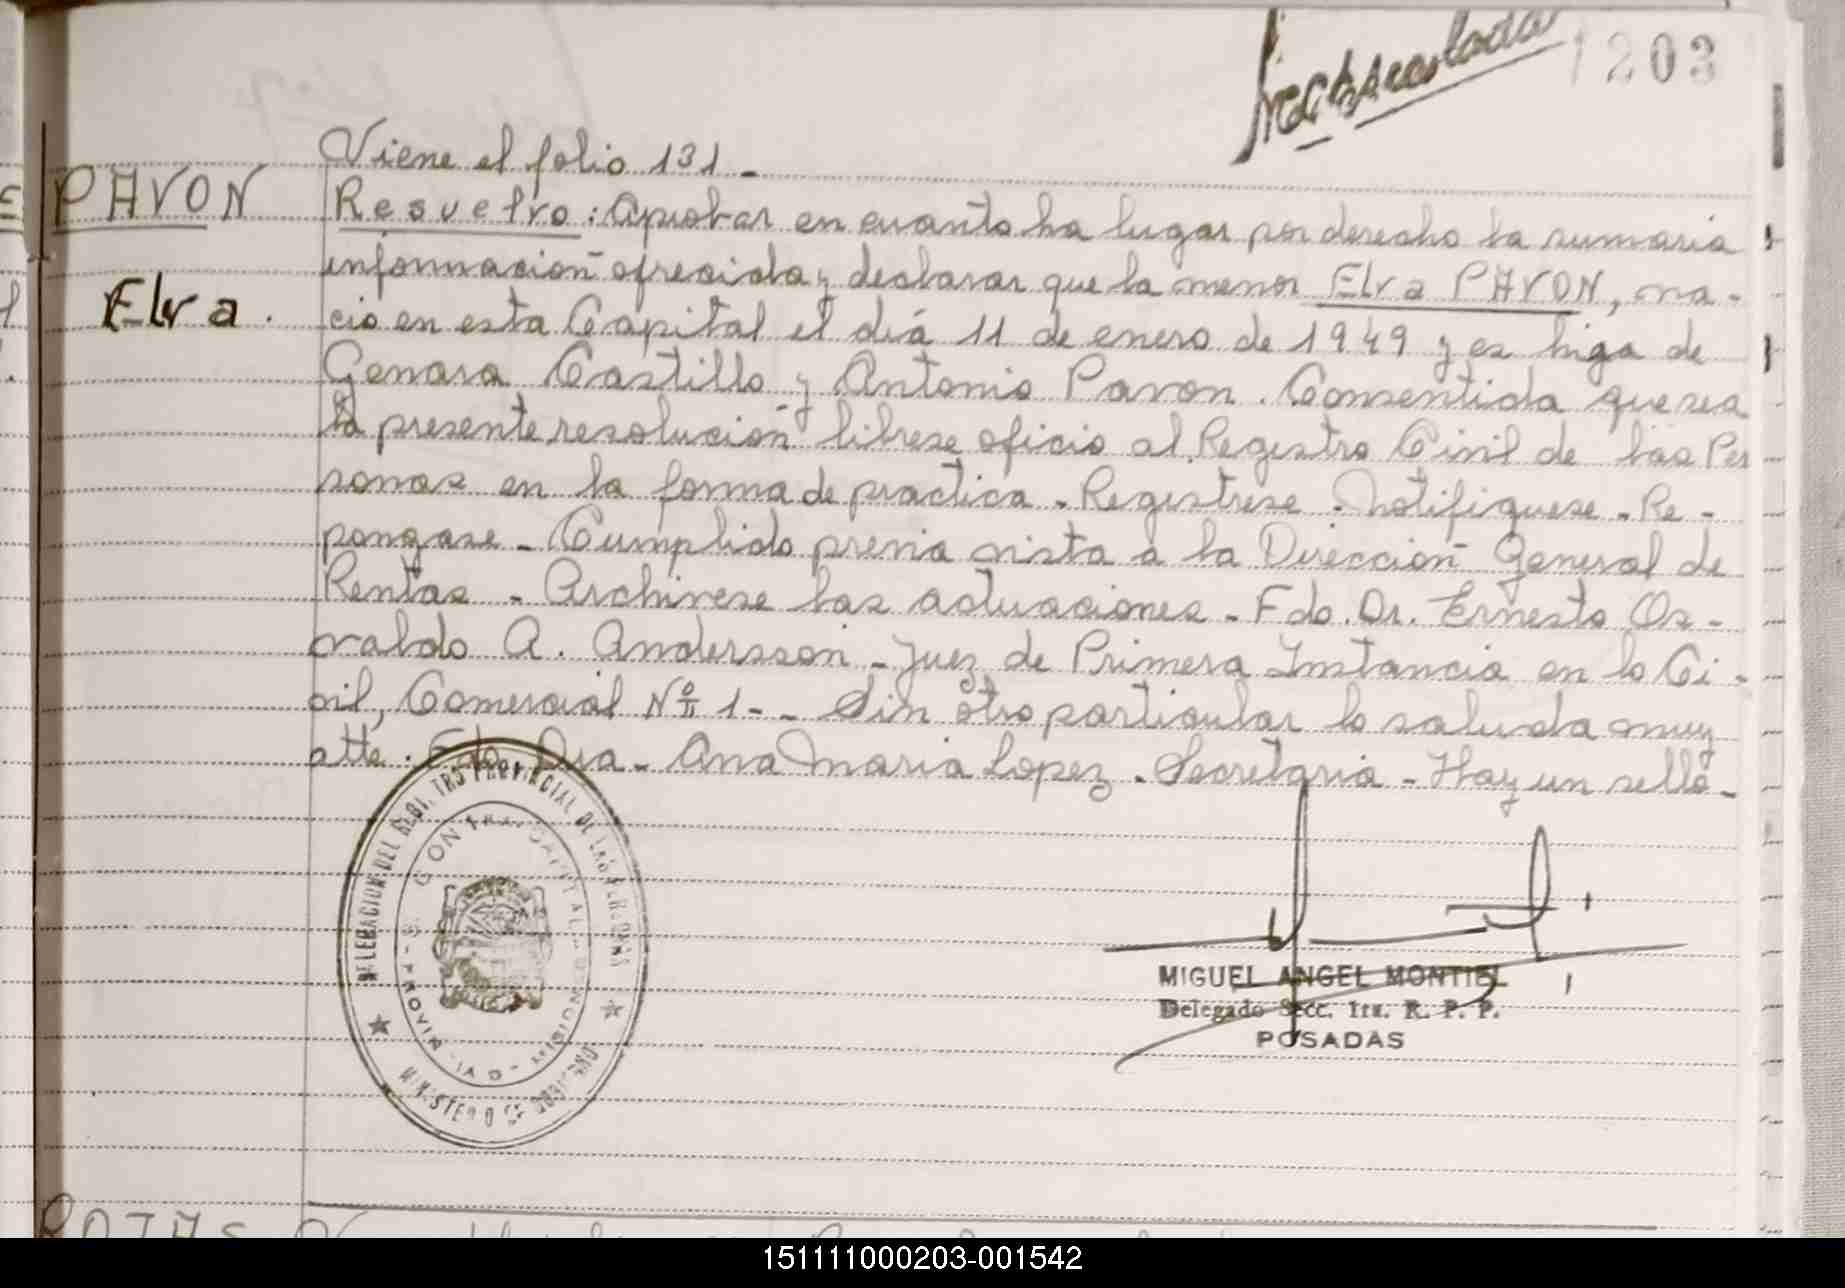 203
Viene el folio 131 -
PAVON
Resuelvo: Aprobar en cuanto ha lugar por derecho la sumaria
información ofrecida y declarar que la menor Elva PAVON, na-
Elva.
cio en esta Capital el día 11 de enero de 1949 y es higa de
Genara Castillo y Antonio Pavon. Consentida que sea
la presente resolución librese oficio al Registro Civil de las Per
sonas en la forma de practica - Registrese - Notifiquese - Re-
pongase - Cumplido previa vista a la Dirección General de
Rentas - Archivese las actuaciones - Fdo. Dr. Ernesto Os-
valdo A. Andersson - Juez de Primera Instancia en lo Ci-
vil, Comercial Nº 1 - - Sin otro particular lo saluda muy
atte. Fdo Dra - Ana Maria Lopez - Secretaria - Hay un sello -
MIGUEL ANGEL MONTIEL
Delegado Secc. 1ra. R. P. P.
POSADAS
ROJAS
151111000203-001542